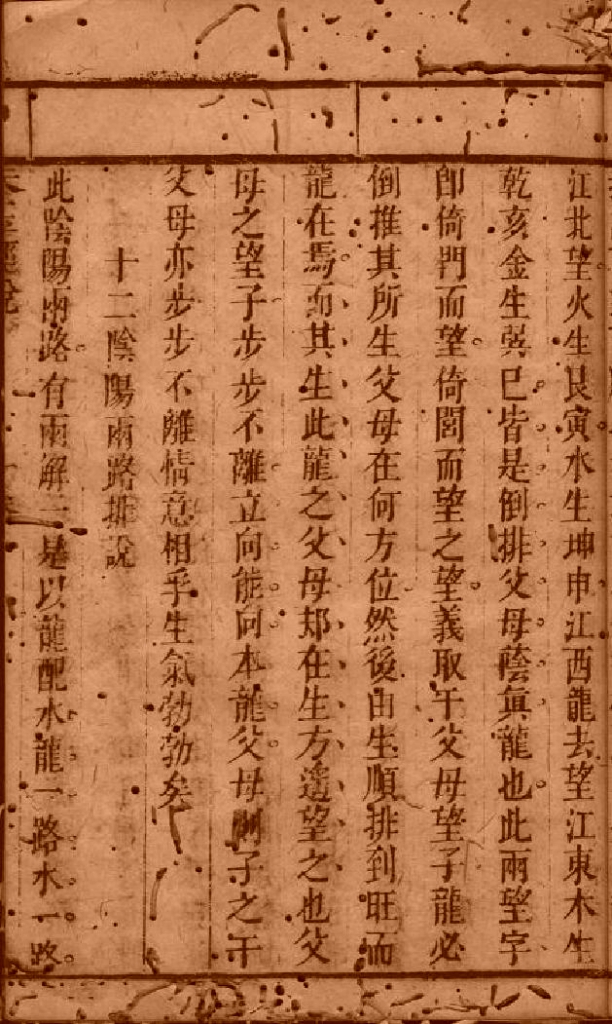 江北望火生艮寅水生坤申江西龍去望江東木生
乾亥金生巽巳皆是倒排父母蔭眞龍也此兩望字
卽倚門而望倚閭而望之望義取于父母望子龍必
倒推其所生父母在何方位然後由生順排到旺而
龍在焉而其生此龍之父母却在生方遙望之也父
母之望子步步不離立向能向本龍父母則子之于
父母亦步步不離情意相孚生氣勃勃矣
十二陰陽兩路排說
此陰陽兩路有兩解一是以龍配水龍一路水一路